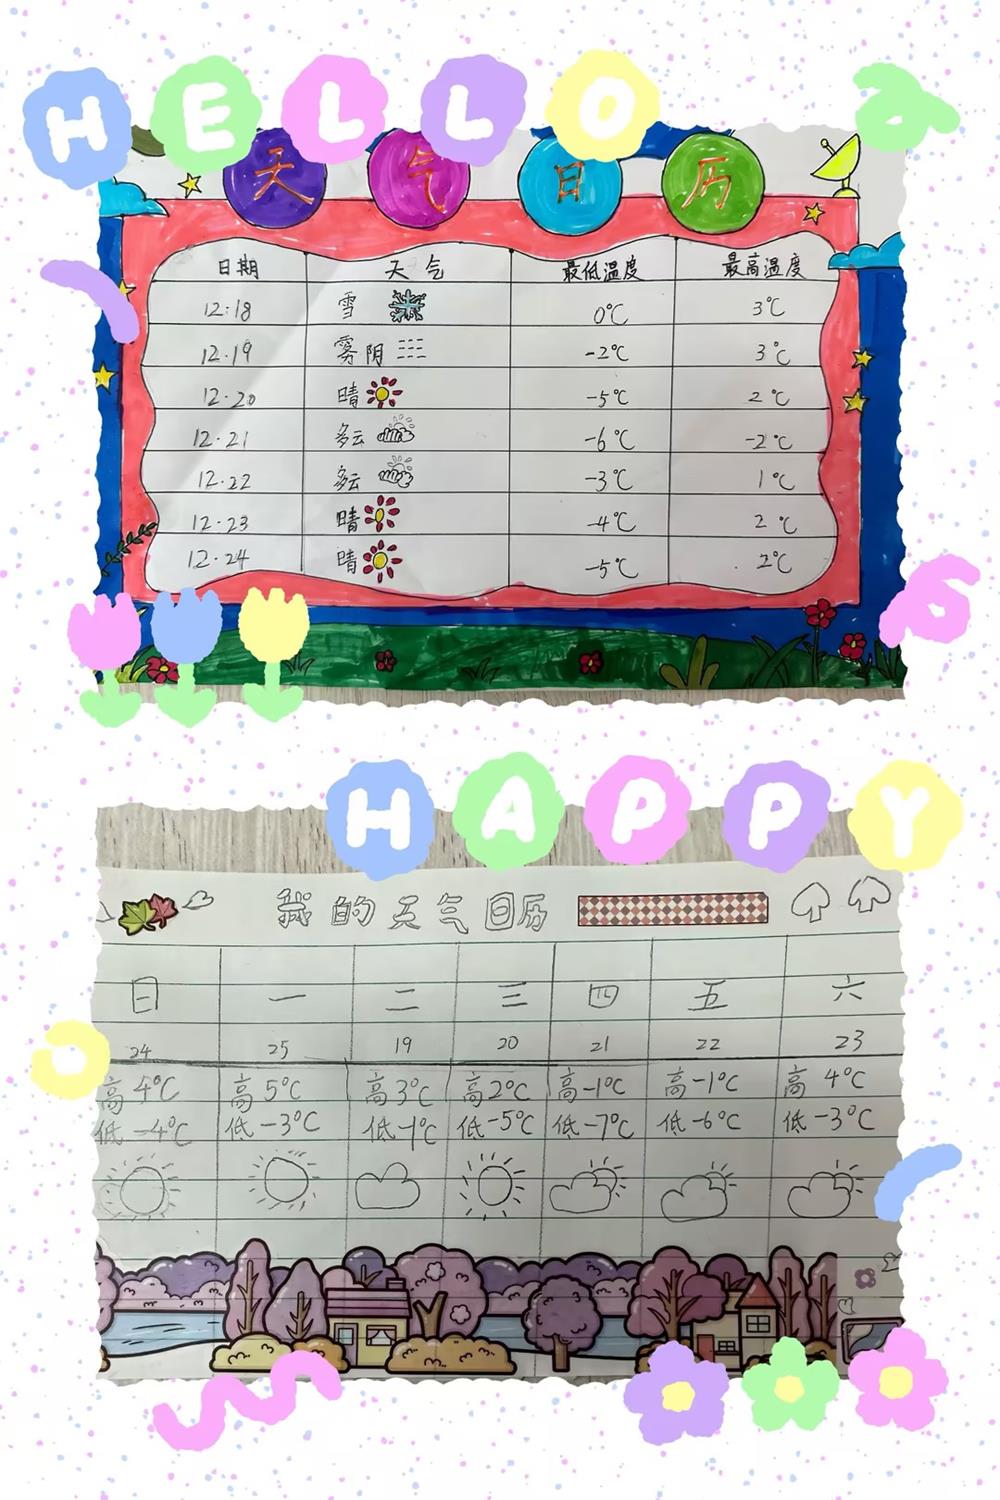 HELLO
天气日历
日期 天气 最低温度 最高温度
12:18 雪 0℃ 3℃
12.19 雾阴 -2℃ 3℃
12.20 晴 -5℃ 2℃
12.21 多云 -6℃ -2℃
12.22 多云 -3℃ 1℃
12.23 晴 -4℃ 2℃
12.24 晴 -5℃ 2℃
HAPPY
我的天气日历
日 一 二 三 四 五 六
24 25 19 20 21 22 23
高4℃ 高5℃ 高3℃ 高2℃ 高-1℃ 高-1℃ 高 4℃
低-4℃ 低-3℃ 低-1℃ 低-5℃ 低-7℃ 低-6℃ 低-3℃